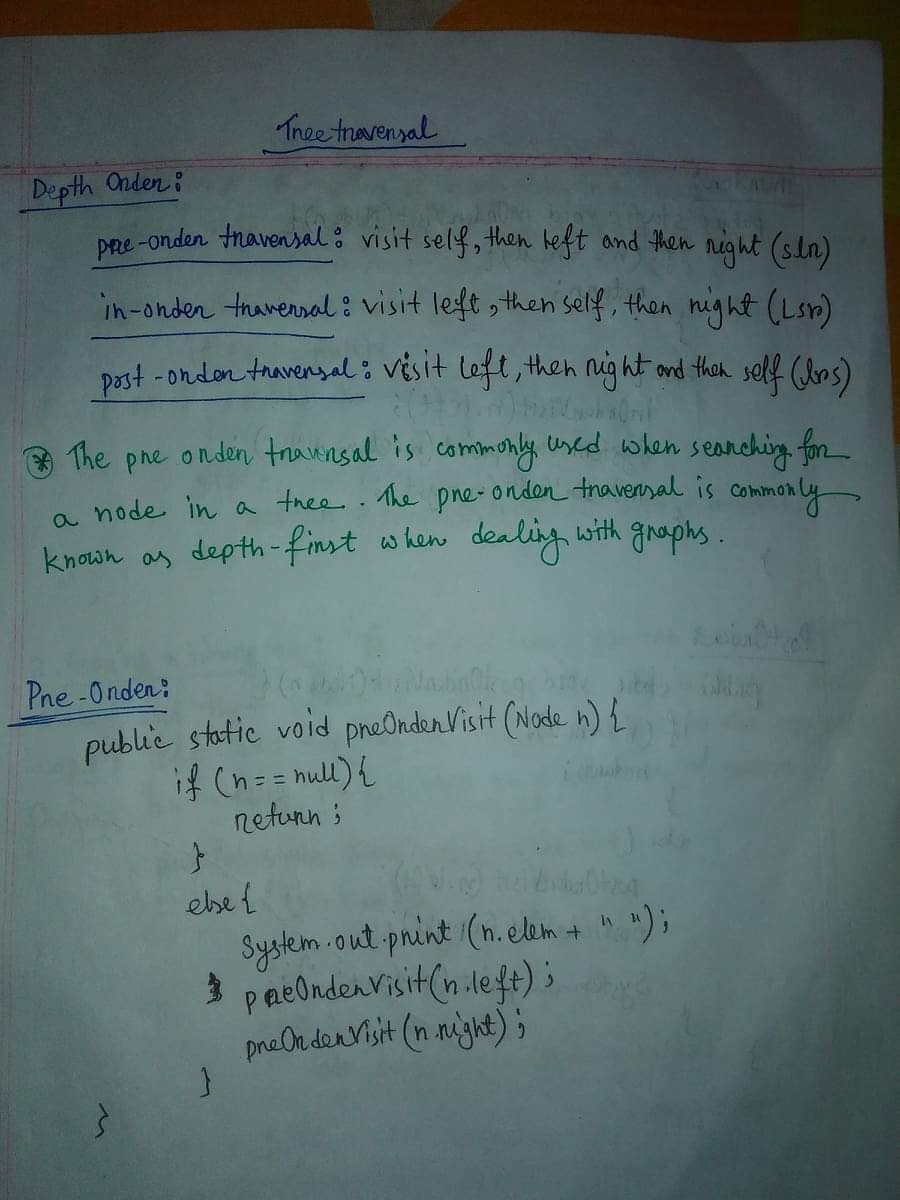 Tree traversal
Depth Order:
pre-order traversal: visit self, then left and then right (slr)
in-order traversal: visit left, then self, then right (Lsr)
post-order traversal: visit left, then right and then self (lrs)
* The pre order traversal is commonly used when searching for
a node in a tree. The pre-order traversal is commonly
known as depth-first when dealing with graphs.
Pre-Order:
public static void preOrderVisit (Node n) {
if (n == null) {
return;
}
else {
System.out.print (n.elem + " ");
preOrderVisit(n.left);
preOrderVisit (n.right);
}
}